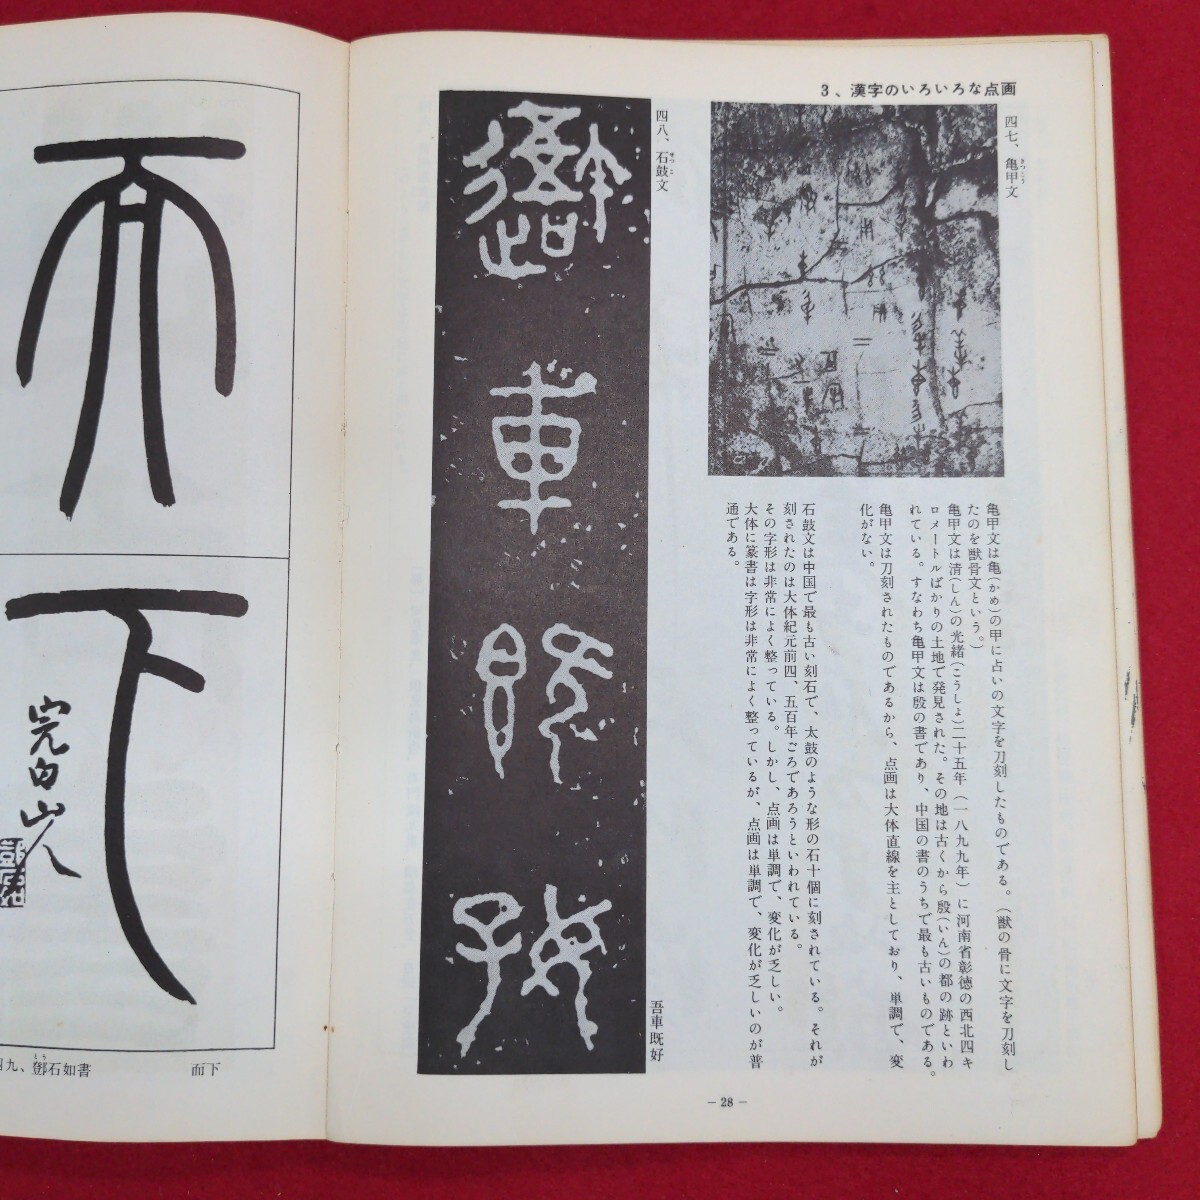 3、漢字のいろいろな点画
四七、亀甲文
きっこう
亀甲文は亀(かめ)の甲に占いの文字を刀刻したものである。(獣の骨に文字を刀刻し
たのを獣骨文という。)
亀甲文は清(しん)の光緒(こうしょ)二十五年(一八九九年)に河南省彰徳の西北四キ
ロメートルばかりの土地で発見された。その地は古くから殷(いん)の都の跡といわ
れている。すなわち亀甲文は殷の書であり、中国の書のうちで最も古いものである。
亀甲文は刀刻されたものであるから、点画は大体直線を主としており、単調で、変
化がない。
四八、石鼓文
せっこ
石鼓文は中国で最も古い刻石で、太鼓のような形の石十個に刻されている。それが
刻されたのは大体紀元前四、五百年ごろであろうといわれている。
その字形は非常によく整っている。しかし、点画は単調で、変化が乏しい。
大体に篆書は字形は非常によく整っているが、点画は単調で、変化が乏しいのが普
通である。
吾車既好
— 28 —
而下
完白山人
四九、鄧石如書
とう
而下